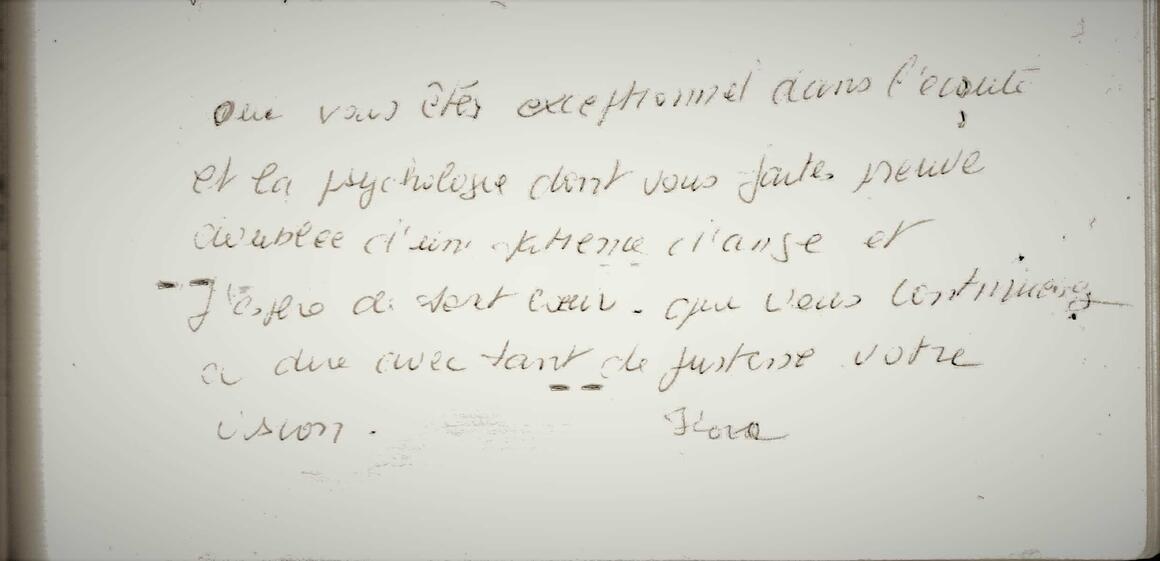 Que vous êtes exceptionnel dans l'écoute
et la psychologie dont vous faites preuve
doublée d'un patience d'ange et
J'espère de tout cœur. que vous continuerez
a dire avec tant de justesse votre
vision.